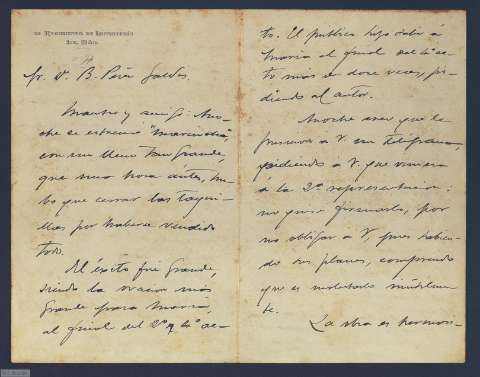 Regimiento de Infantería
Sr. D. B. Pérez Galdós.
Maestro y amigo: Ano-
che se estrenó "Marianela",
con un lleno tan grande,
que una hora antes, hu-
bo que cerrar las taqui-
llas por haberse vendido
todo.
El éxito fué grande,
siendo la ovación más
grande para María,
al final del 2º y 4º ac-
to. El público hizo salir á
María al final del 4º ac-
to más de doce veces, pi-
diendo al autor.
Anoche mismo
á V. un telégrama,
pidiendo a V. que viniera
á la 2ª representación;
no quise firmarlo, por
no obligar á V, pues
sus planes, comprendo
que es molestarlo inútilmen-
te.
La obra es hermos-